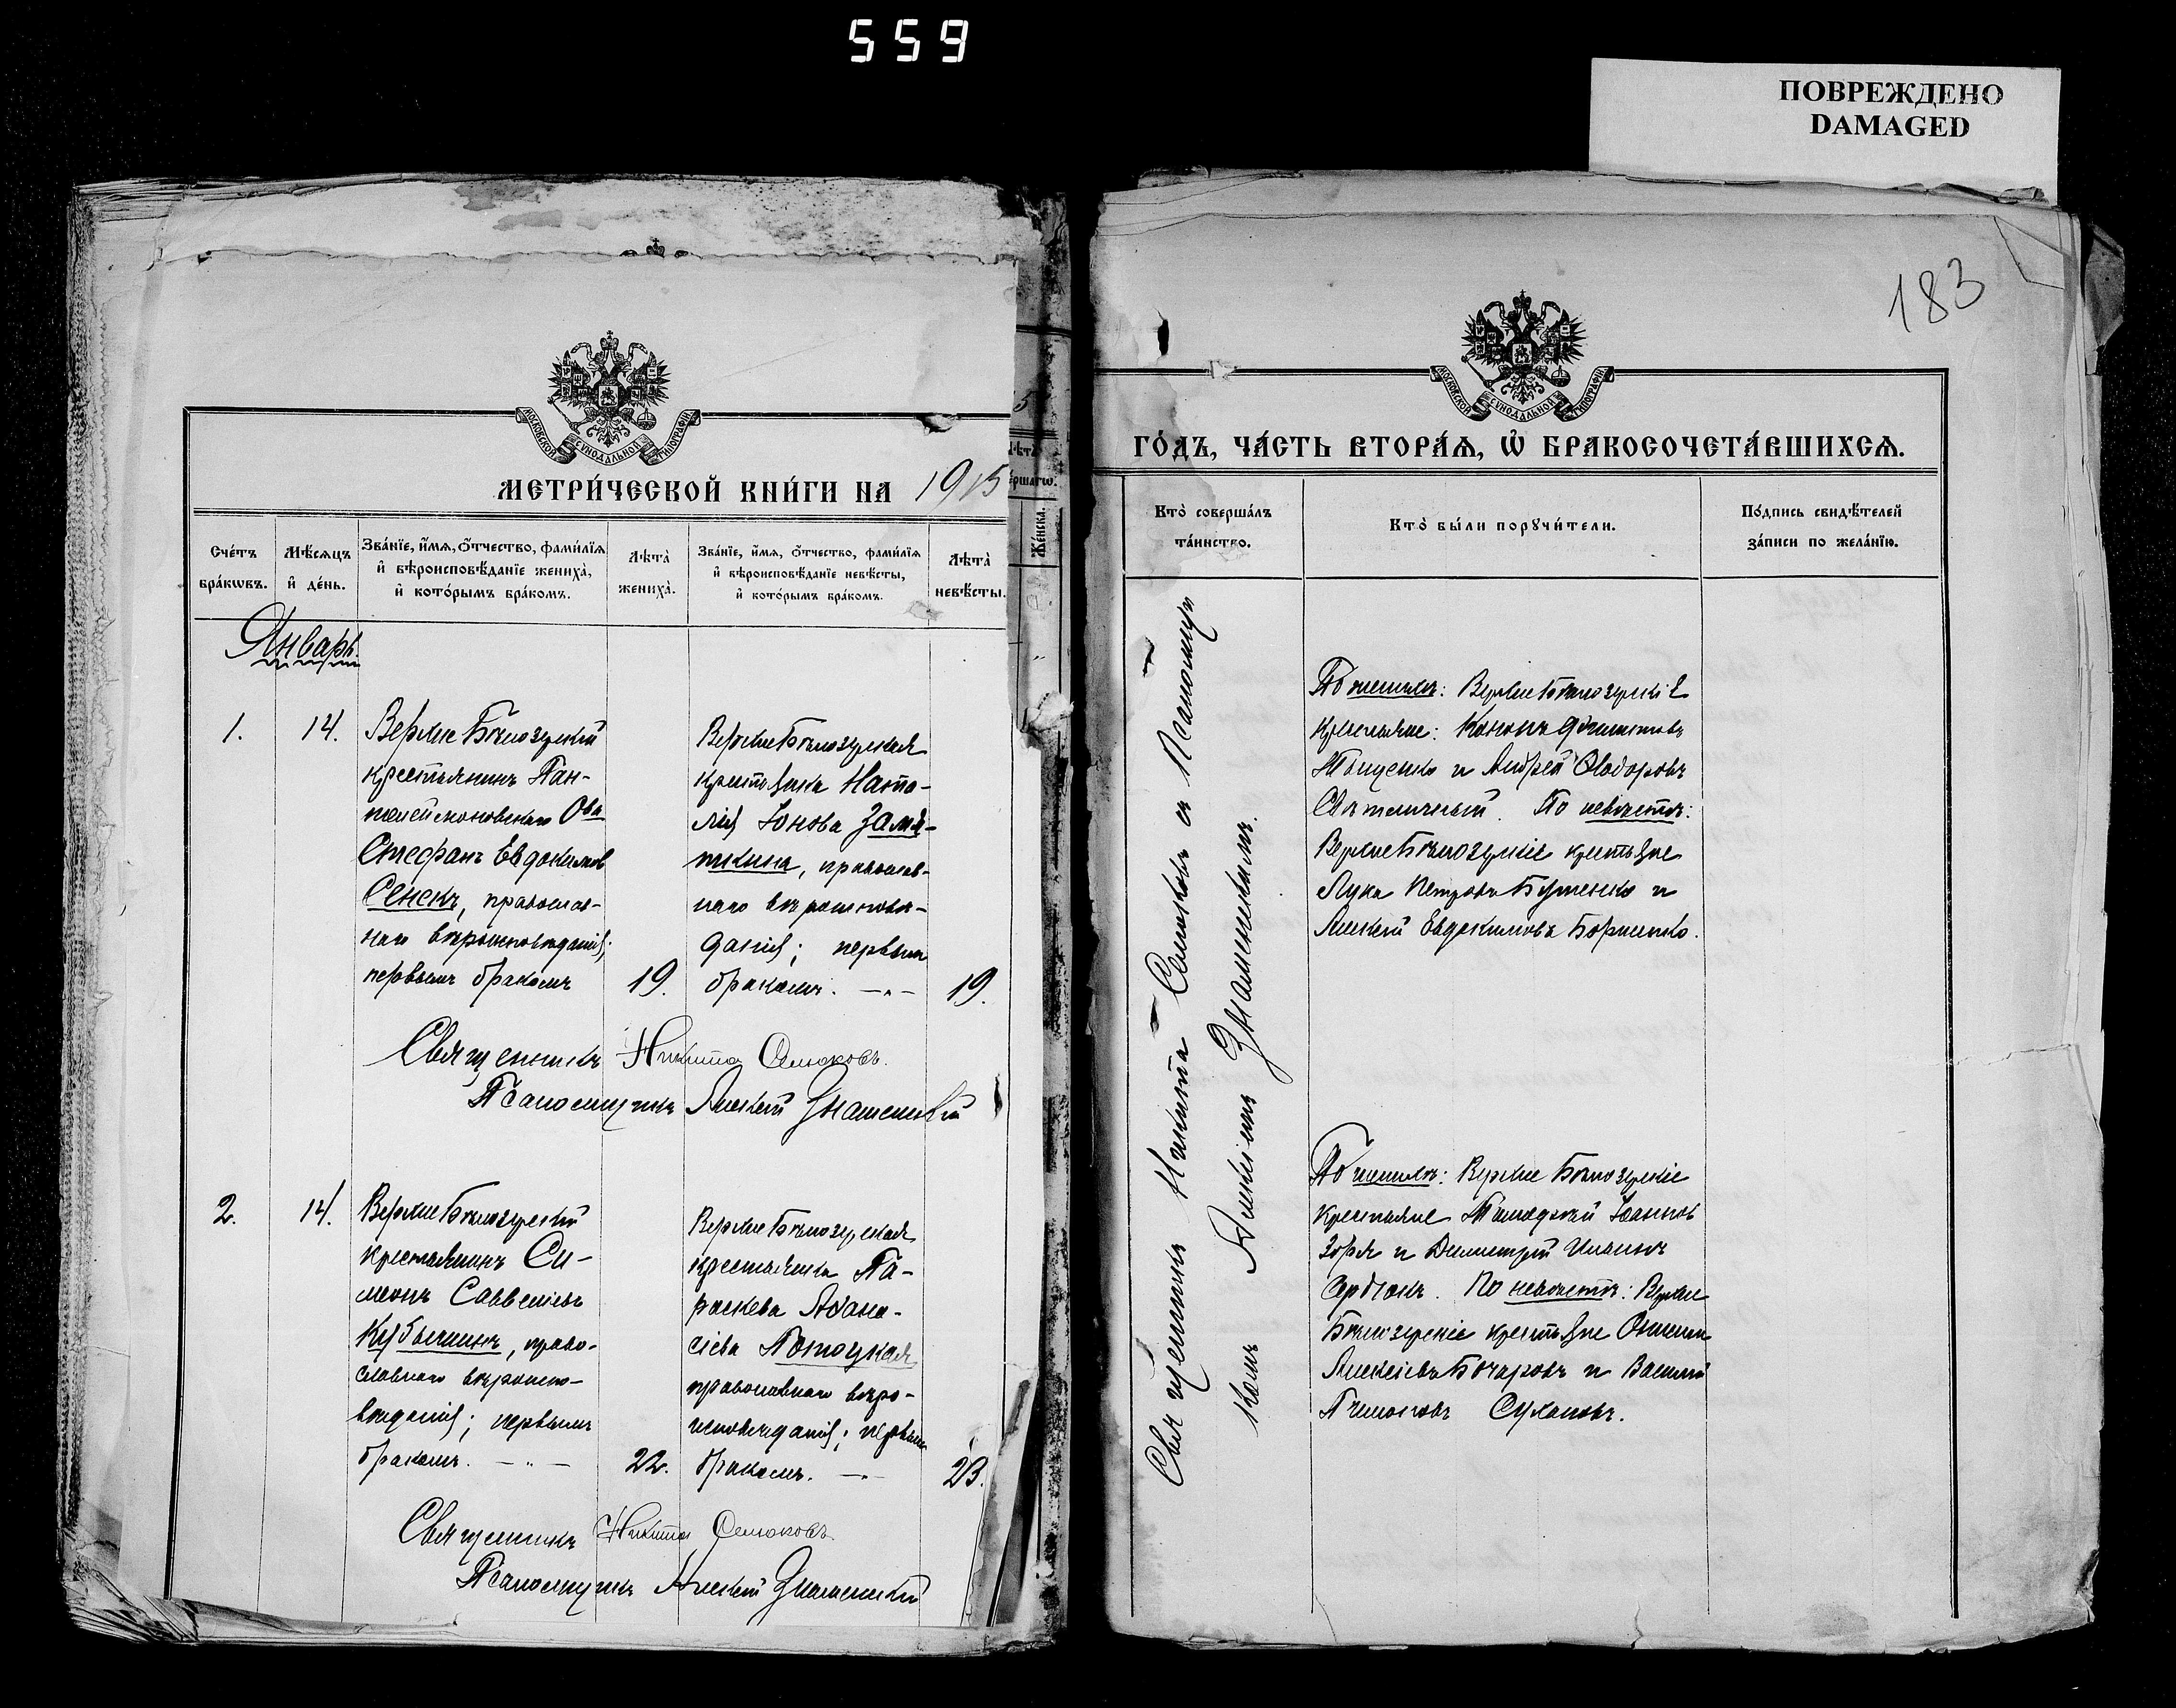 559
ПОВРЕЖДЕНО
DAMAGED
183
МОСКОВСКОЙ СУНОДАЛЬНОЙ ТИПОГРАФІИ
МЕТРИ́ЧЕСКОЙ КНИ́ГИ НА 1915
Сче́тъ бра́кѡвъ.
Мѣ́сяцъ и҆ де́нь.
Зва́нїе, и҆́мѧ, ѻ҆́тчество, фами́лїѧ
и҆ вѣроисповѣ́данїе жениха̀,
и҆ кото́рымъ бра́комъ.
Лѣ́та̀ жениха̀.
Зва́нїе, и҆́мѧ, ѻ҆́тчество, фами́лїѧ
и҆ вѣроисповѣ́данїе невѣ́сты,
и҆ кото́рымъ бра́комъ.
Лѣ́та̀ невѣ́сты.
Же́нска.
Январь.
1.
14.
Верхне Бѣлозерскій
крестьянинъ Пан-
телеймоновскаго О-ва
Стефанъ Евдокимов
Сенекъ, православ-
наго вѣроисповѣданія;
первымъ бракомъ
19.
Верхне Бѣлозерская
крестьянка Ната-
лія Іонова Замя-
ткина, православ-
наго вѣроисповѣ-
данія; первым
бракомъ. —„—
19.
Священникъ Никита Селюковъ.
Псаломщикъ Алексій Знаменскій
2.
14.
Верхне Бѣлозерскій
крестьянинъ Си-
меонъ Саввеліевъ
Кубышкинъ, право-
славнаго вѣроиспо-
вѣданія; первымъ
бракомъ. —„—
22.
Верхне Бѣлозерская
крестьянка Па-
раскева Аѳана-
сіева Потоцкая
православнаго вѣро-
исповѣданія; первым
бракомъ. —„—
23.
Священникъ Никита Селюковъ
Псаломщикъ Алексій Знаменскій
МОСКОВСКОЙ СУНОДАЛЬНОЙ ТИПОГРАФІИ
ГО́ДЪ, ЧА́СТЬ ВТОРА́Ѧ, Ѽ БРАКОСОЧЕТА́ВШИХСѦ.
Кто̀ соверша́лъ
та́инство.
Кто̀ бы́ли порꙋчи́тели.
По́дпись свидѣ́телей
за́писи по жела́нїю.
Священникъ Никита Селюковъ съ Псаломщи
комъ Алексіемъ Знаменскимъ.
По женихѣ: Верхне Бѣлозерскіе
крестьяне: Кононъ
и Андрей Ѳеодоровъ
Свѣтличный. По невѣстѣ:
Верхне Бѣлозерскіе крестьяне
Лука Петровъ и
Алексій Евдокимовъ
По женихѣ: Верхне Бѣлозерскіе
крестьяне Іоаннов
Зоря и Димитрій
Сердюкъ. По невѣстѣ: Верхне
Бѣлозерскіе крестьяне
Алексіевъ Бочаровъ и Василій
Сухановъ.